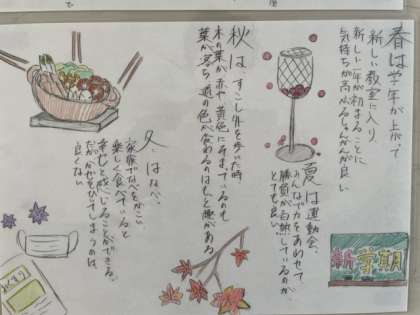 春は学年が上がって
新しい教室に入り
新しい一年が始まることに
気持ちが高ぶるしゅんかんが良い
夏は運動会、
みんなで力をあわせて
勝負が白熱しているのが
とても良い
秋は、すこし外を歩いた時
木の葉が赤や黄色にそまっているのも
葉が落ち、道の色が染めるのはもと趣がある
冬はなべ、
家族でなべをかこい
楽しく食べていると
幸せと感じることができる、
だがかぜをひいてしまうのは、
良くない
新学期